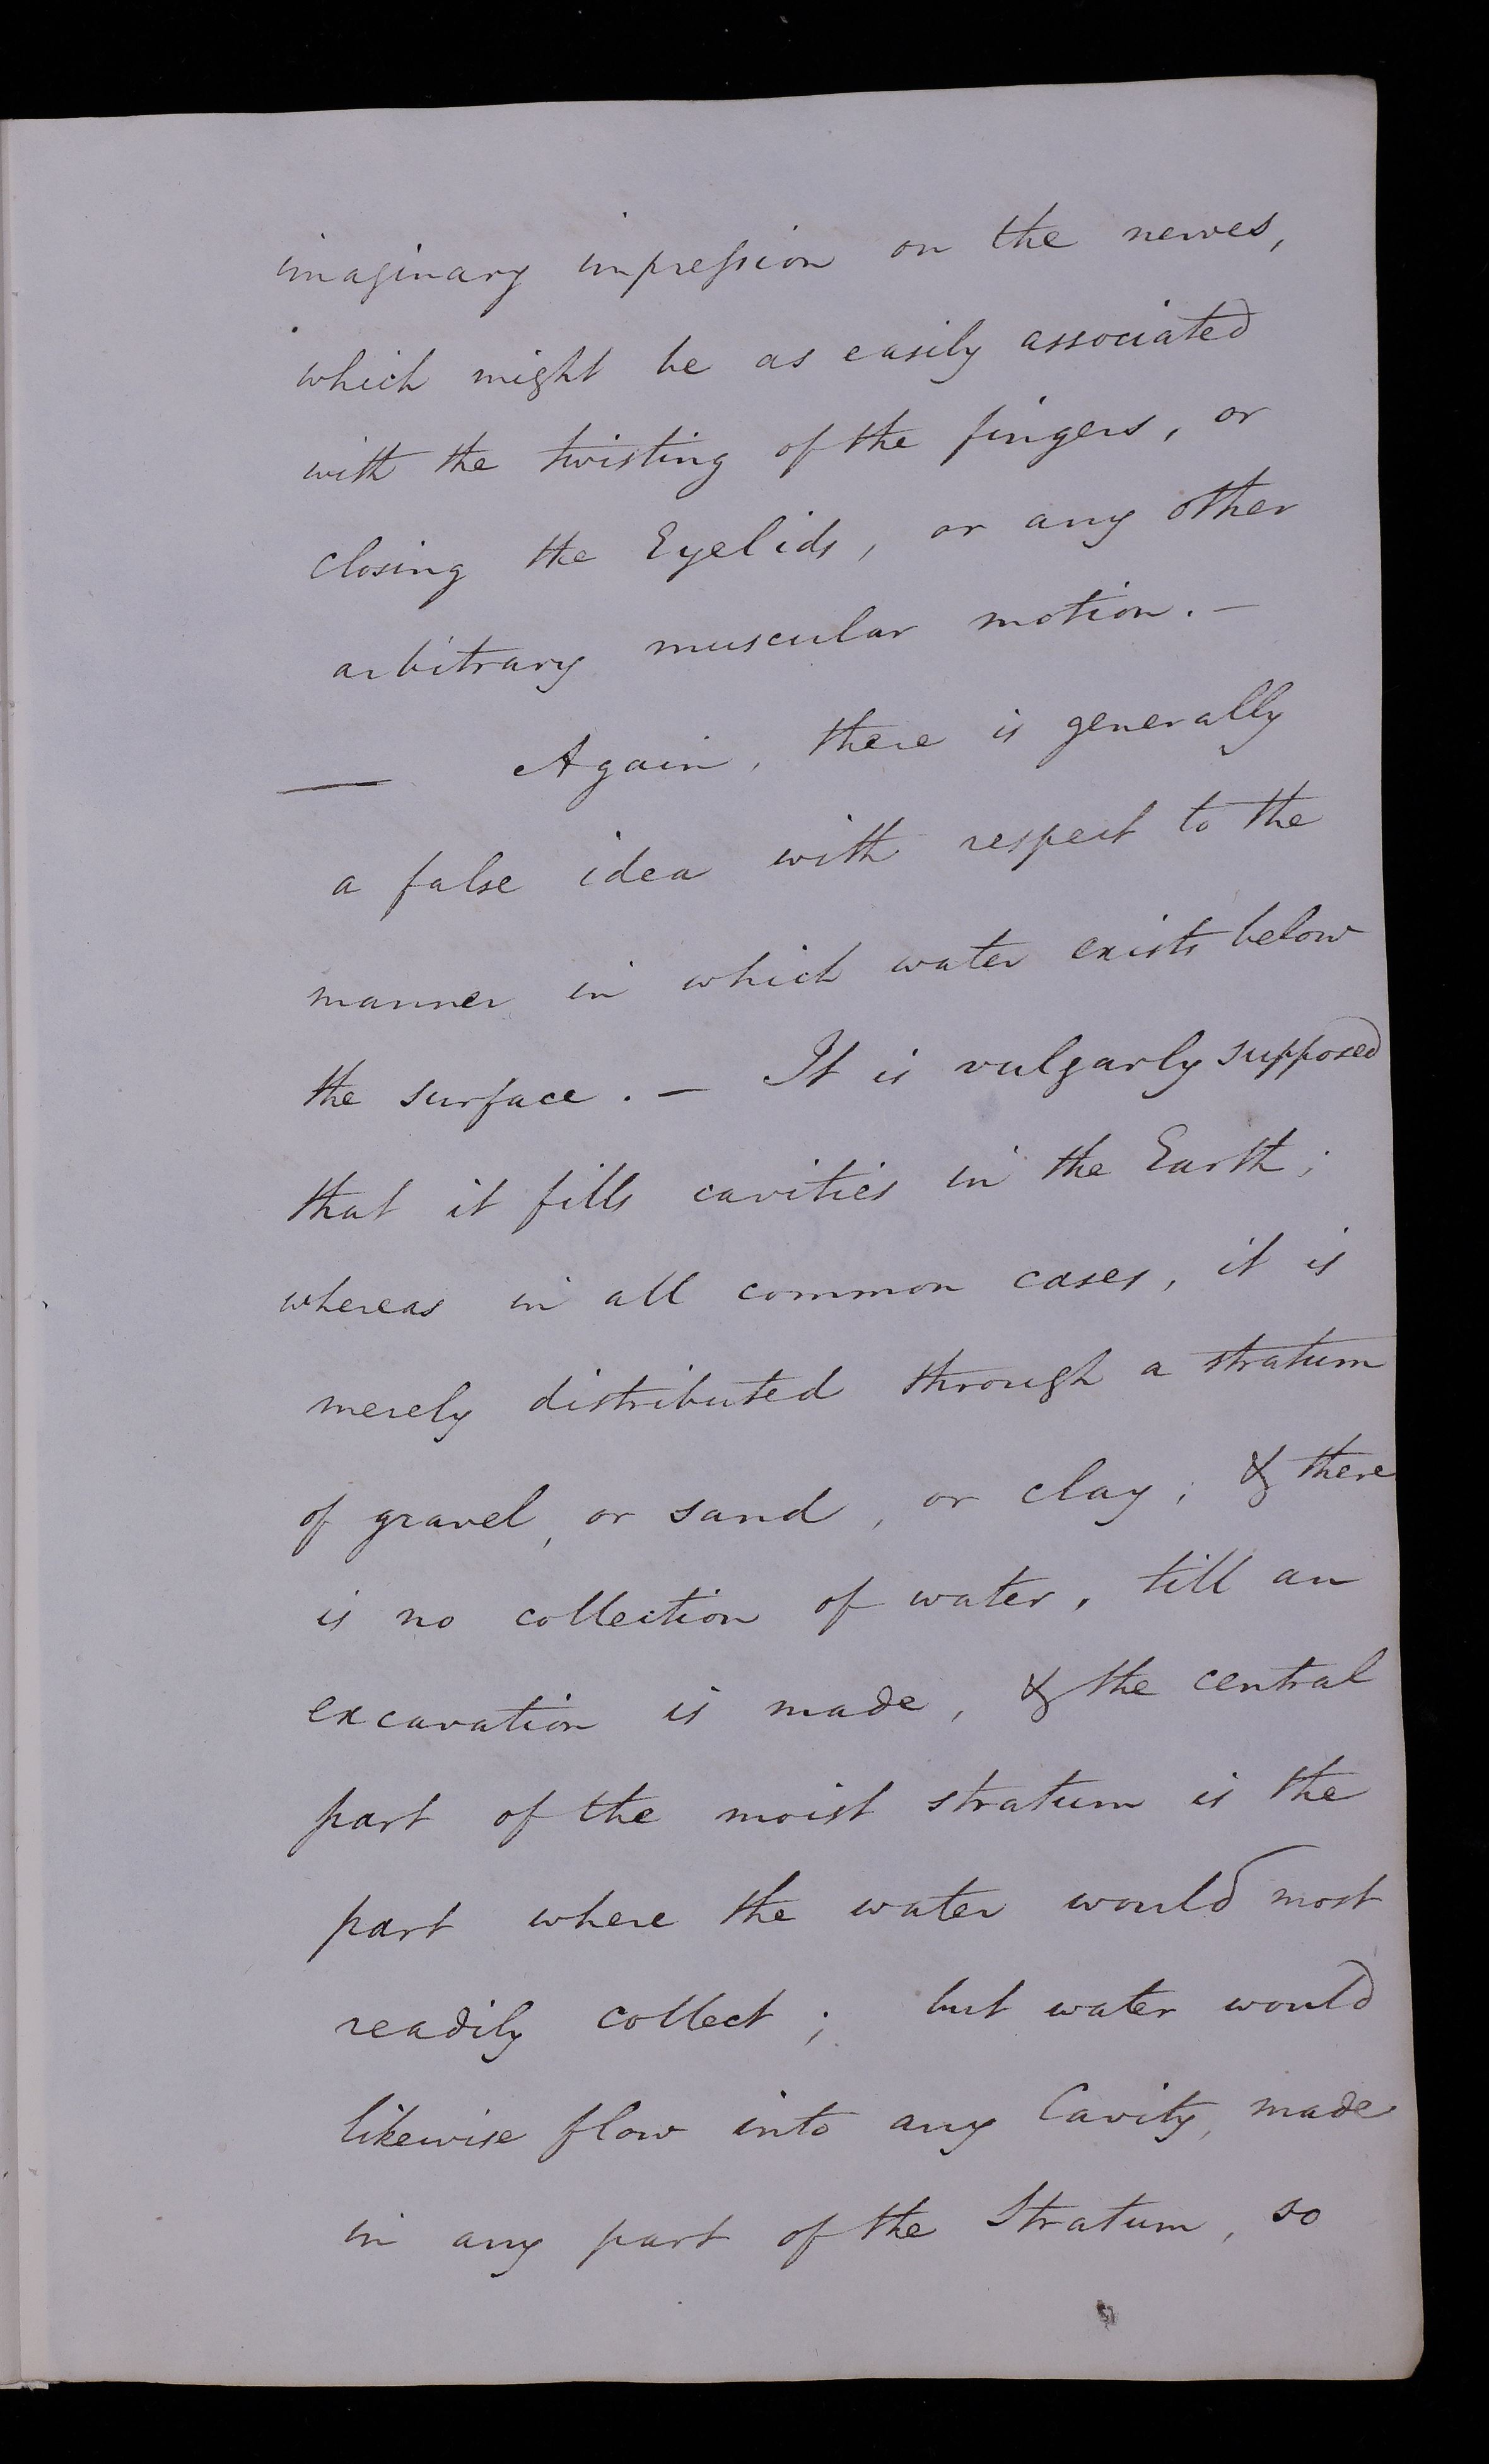 imaginary impression on the nerves,
which might be as easily associated
with the twisting of the fingers, or
closing the Eyelids, or any other
arbitrary muscular motion. —
— Again, there is generally
a false idea with respect to the
manner in which water exists below
the surface. — It is vulgarly supposed
that it fills cavities in the Earth;
whereas in all common cases, it is
merely distributed through a stratum
of gravel, or sand, or clay; & there
is no collection of water, till an
excavation is made, & the central
part of the moist stratum is the
part where the water would most
readily collect; but water would
likewise flow into any Cavity, made
in any part of the Stratum, so